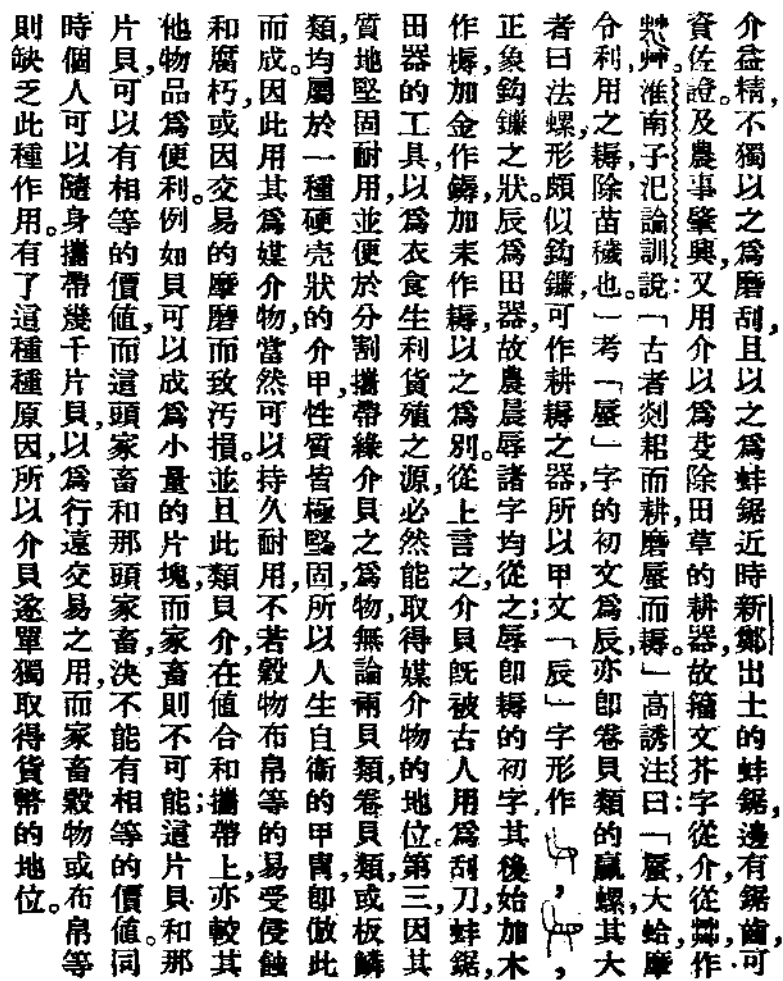 介益精，不獨以之爲磨刮，且以之爲蚌鋸近時新鄭出土的蚌鋸，邊有鋸齒，可
資佐證。及農事肇興，又用介以爲芟除田草的耕器，故籀文芥字從介，從茻作
艸。淮南子氾論訓說：「古者剡耜而耕，磨蜃而耨。」高誘注曰：「蜃，大蛤，摩
令利，用之耨，除苗穢也。」考「蜃」字的初文爲辰，亦即卷貝類的蠃螺，其大
者曰法螺，形頗似鈎鐮，可作耕耨之器，所以甲文「辰」字形作，，
正象鈎鐮之狀。辰爲田器，故農晨辱諸字均從之；辱即耨的初字，其後始加木
作槈，加金作鎒，加耒作耨，以之爲別。從上言之，介貝旣被古人用爲刮刀，蚌鋸，
田器的工具，以爲衣食生利貨殖之源，必然能取得媒介物的地位。第三，因其
質地堅固耐用，並便於分割，攜帶緣介貝之爲物，無論兩貝類，卷貝類，或板鱗
類，均屬於一種硬壳狀的介甲，性質皆極堅固，所以人生自衞的甲冑，卽倣此
而成。因此用其爲媒介物，當然可以持久耐用，不若穀物布帛等的易受侵蝕
和腐朽，或因交易的摩磨而致汚損。並且此類貝介，在値合和攜帶上，亦較其
他物品爲便利。例如貝可以成爲小量的片塊，而家畜則不可能；這片貝和那
片貝，可以有相等的價値，而這頭家畜和那頭家畜，決不能有相等的價値。同
時個人可以隨身攜帶幾千片貝，以爲行遠交易之用，而家畜穀物或布帛等
則缺乏此種作用。有了這種種原因，所以介貝遂單獨取得貨幣的地位。